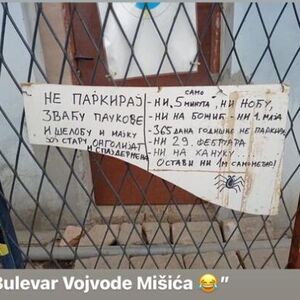 НЕ ПАРКИРАЈ
ЗВАЋУ ПАУКОВЕ
И ШЕЛОБУ И МАЈКУ
ЈОЈ СТАРУ УНГОЛИЈАНТ
И СПАЈДЕРМЕНА
САМО
- НИ .5 МИНУТА, НИ НОЋУ,
- НИ НА БОЖИЋ - НИ 1. МАЈА
- 365 ДАНА ГОДИШЊЕ НЕ ПАРКИРАЈ
- НИ 29. ФЕБРУАРА
- НИ НА ХАНУКУ...
ОСТАВИ НИ 1М САМО МЕТАР!
Bulevar Vojvode Mišića 😂"